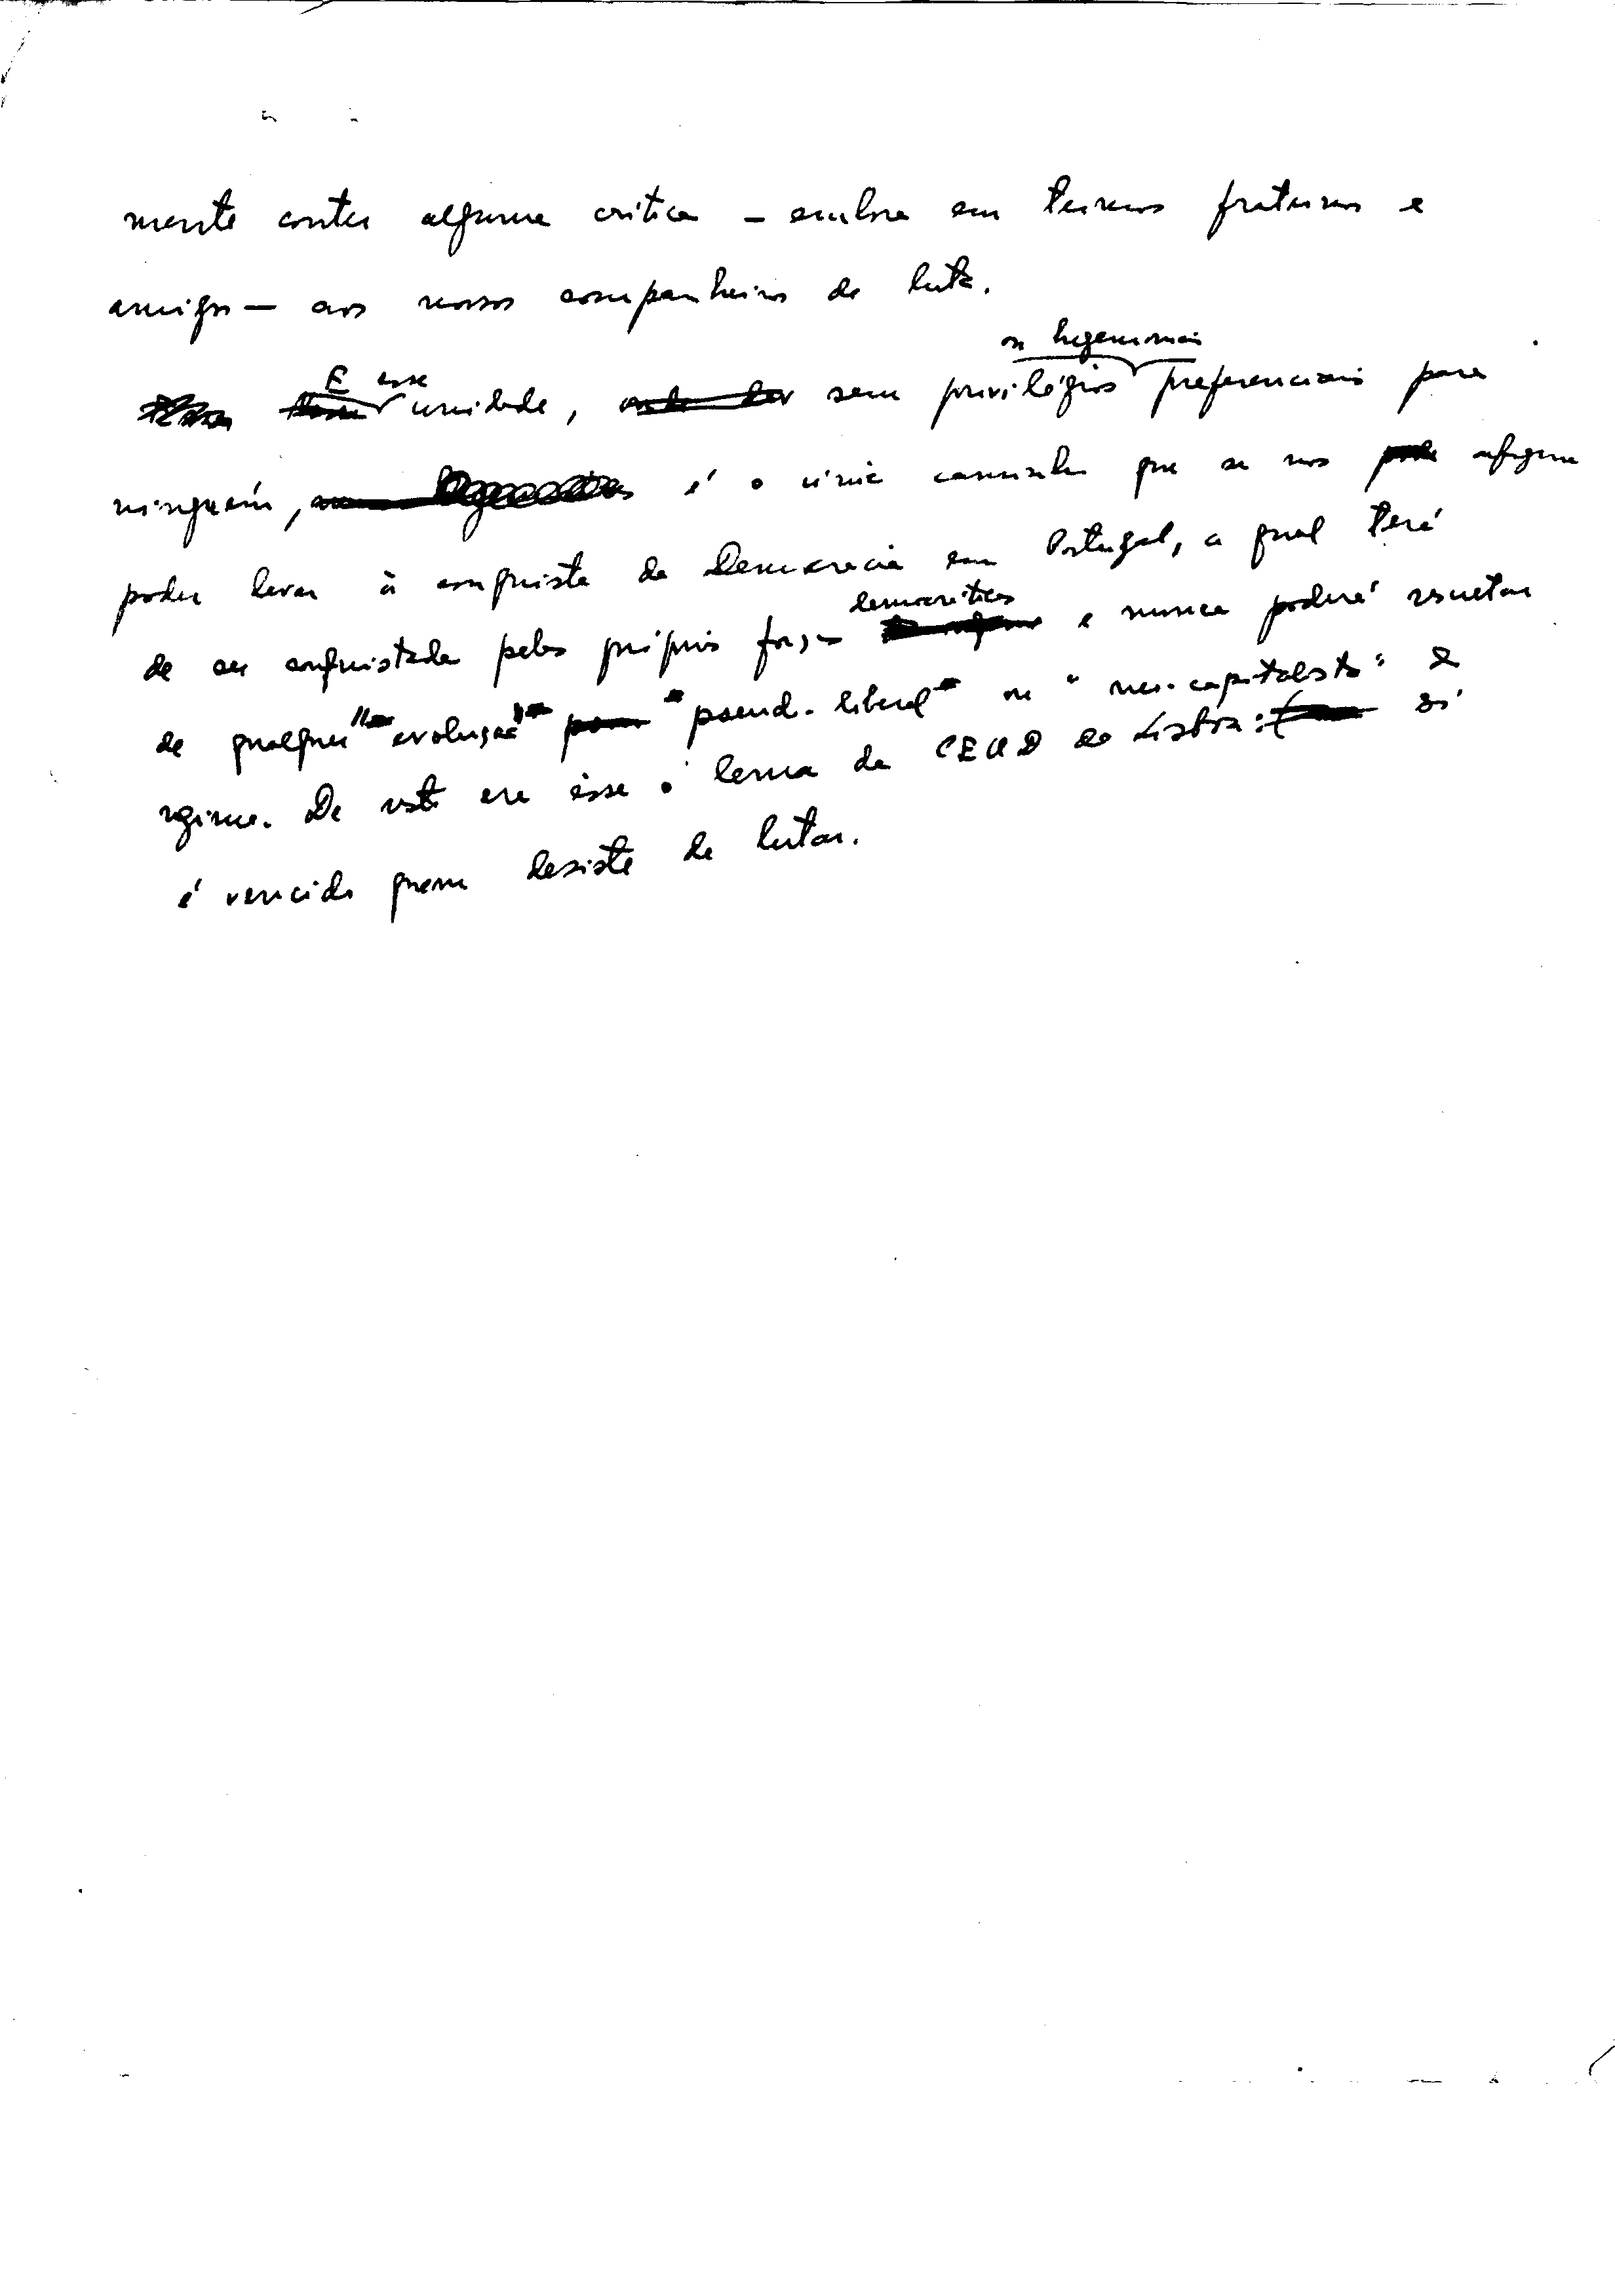 mente conter alguma crítica – embora em termos fraternos e
amigos – aos nossos companheiros de luta.
ou hegemonias
E essa unidade, sem privilégios preferenciais para
ninguém, é o único caminho que se nos afigura
poder levar à conquista da Democracia em Portugal, a qual terá
democráticas
de ser conquistada pelas próprias forças e nunca poderá resultar
de qualquer "evolução" "pseudo-liberal" ou "neo-capitalista" do
regime. De resto era êsse o lema da CEUD de Lisboa: só
é vencido quem desiste de lutar.